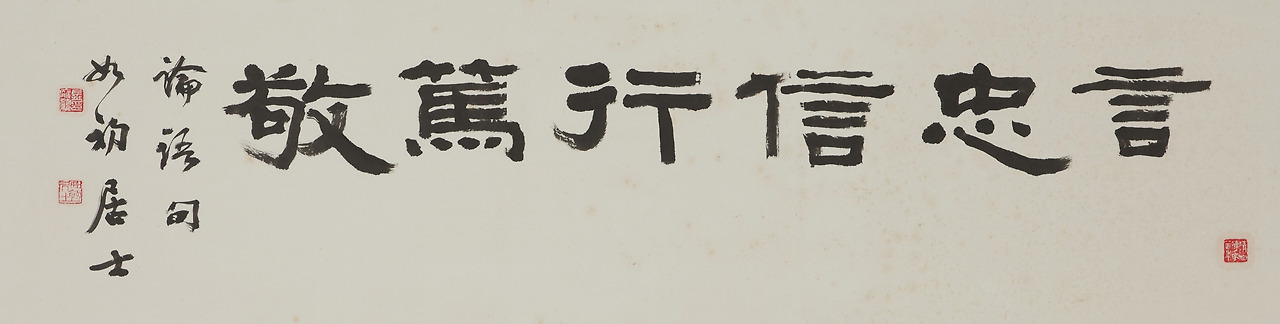 言忠信行篤敬
論語句
如初居士